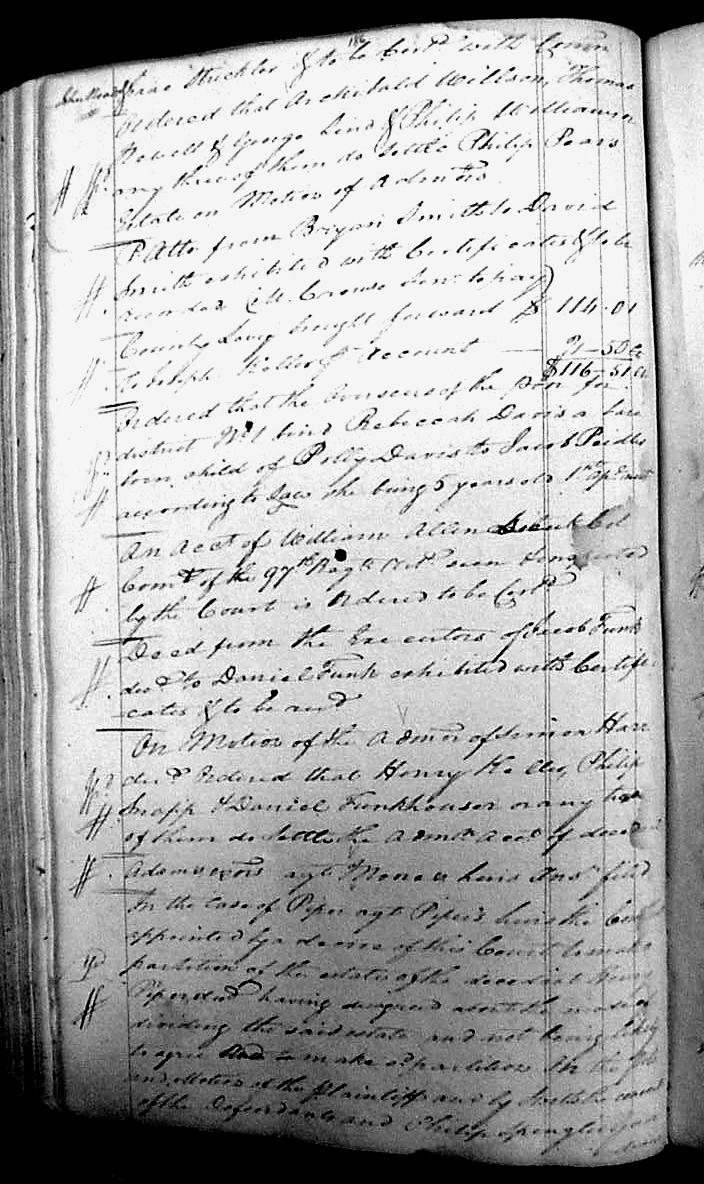 186
Isaac Strickler & to be Certd with Comn
Ordered that Archibald Willson, Thomas
Newell & George Lind & Philip Williamson
any three of them do settle Philip Pears
Estate on Motion of Admtrs
P. Atto from Bryan Smith to David
Smith exhibited with Certificates & to be
recorded
County Levy brought forward $ 114-01
To Joseph account 2-50
$116-51
Ordered that the Overseers of the poor for
district No 1 bind Rebeccah Davis a base
born child of Polly Davis to Jacob
according to Law she being 5 years old 1st
An acct of William Allen
Comdt of the 97th Regt
by the Court is Ordered to be Certd
Deed from the Executors of Jacob Funk
decd to Daniel Funk exhibited with Certifi
cates & to be recd
On Motion of the Admrs of Simon Harr
decd Ordered that Henry Philip
Snapp & Daniel Funkhouser or any two
of them do settle the Admr acct of decd
Adams exors agt heirs Ansr filed
In the case of Piper agt Piper's heirs the
appointed by a decree of this Court to make
partition of the estate of the decedent Henry
Piper decd having disagreed about the mode of
dividing the said estate and not being likely
to agree make a partition On the
and Motion of the Plaintiff and by
of the Defendants and Philip Spengler